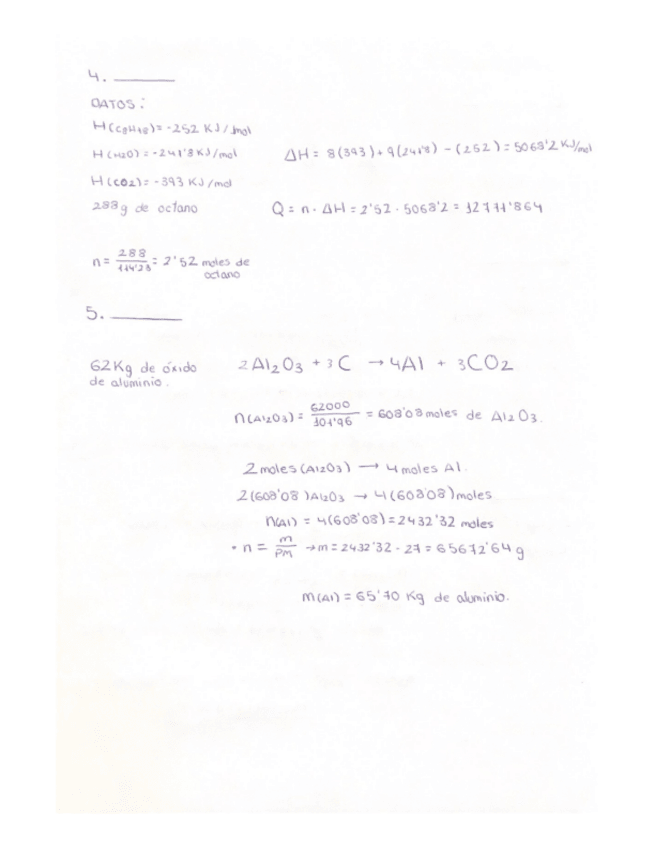 4.
DATOS:
H(C8H18) = -252 KJ/mol
H(H2O) = -241'8 KJ/mol
ΔH = 8(393) + 9(241'8) - (252) = 5068'2 KJ/mol
H(CO2) = -393 KJ/mol
288g de octano
Q = n · ΔH = 2'52 · 5068'2 = 12771'864
n = 288/114'23 = 2'52 moles de octano
5.
62Kg de óxido de aluminio.
2Al2O3 + 3C → 4Al + 3CO2
n(Al2O3) = 62000/101'96 = 608'08 moles de Al2O3.
2 moles (Al2O3) → 4 moles Al.
2(608'08) Al2O3 → 4(608'08) moles
n(Al) = 4(608'08) = 2432'32 moles
· n = m/PM → m = 2432'32 · 27 = 65672'64 g
m(Al) = 65'70 Kg de aluminio.